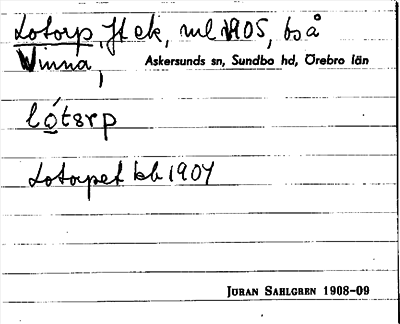 Lotorp, Jt ek, ml 1905, bs å
Vinna, Askersunds sn, Sundbo hd, Örebro län
lótǝrp
Lotorpet kb 1907
JÖRAN SAHLGREN 1908-09